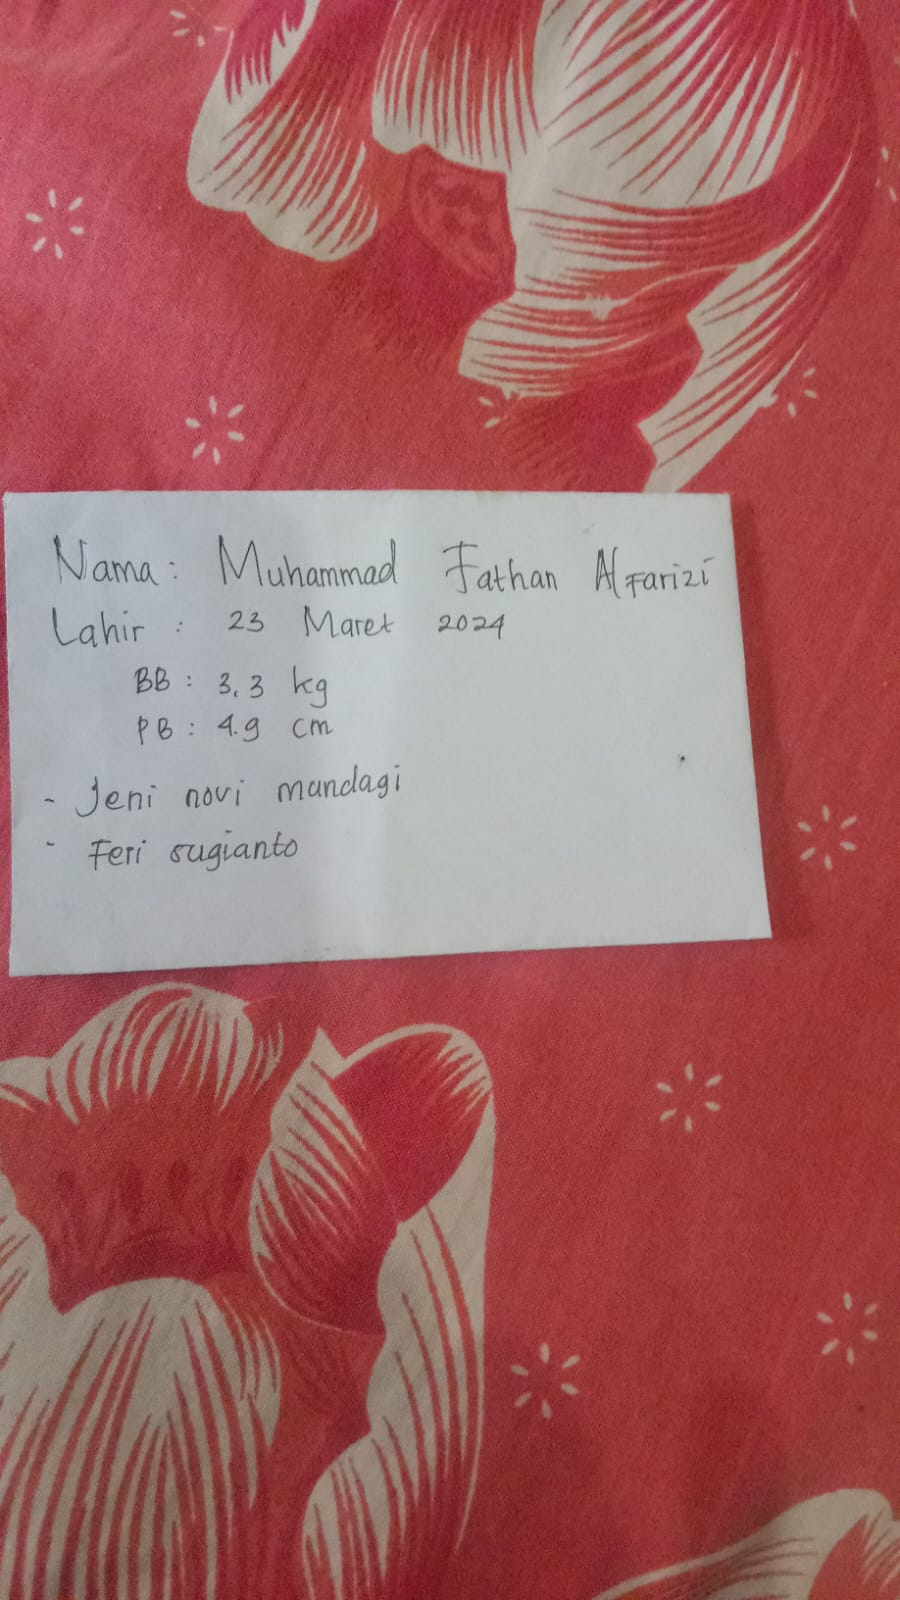 Nama : Muhammad Fathan Alfarizi
Lahir : 23 Maret 2024
BB : 3.3 kg
PB : 4.9 cm
- Jeni novi mundagi
- Feri sugianto